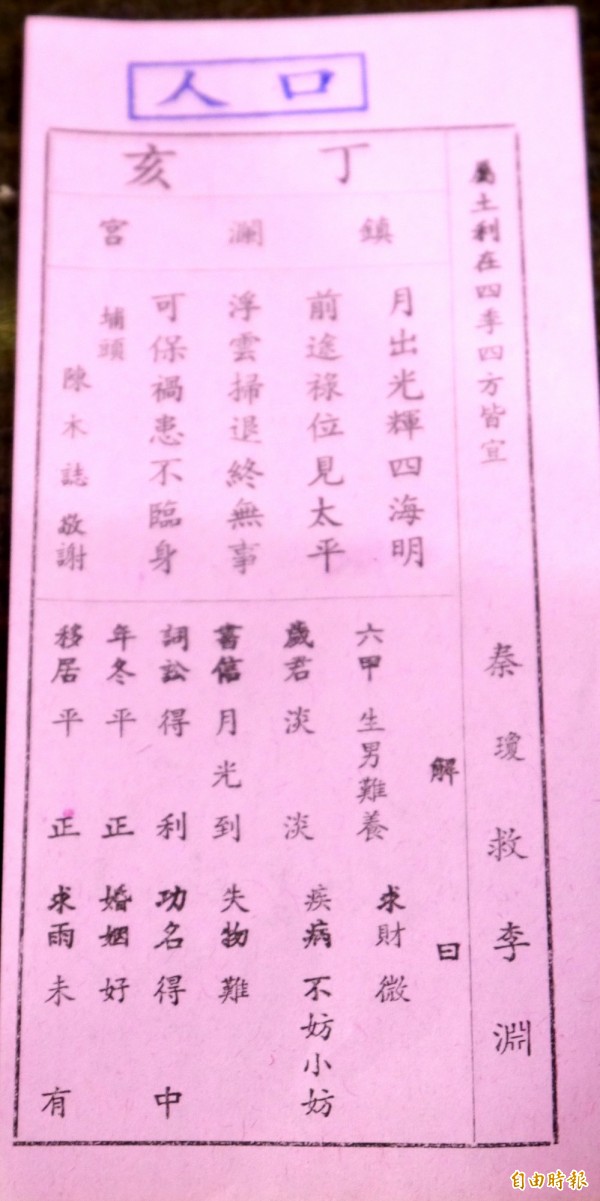 人口
丁亥
鎮瀾宮
屬土利在四季四方皆宜
秦瓊救李淵
月出光輝四海明
前途祿位見太平
浮雲掃退終無事
可保禍患不臨身
埔頭
陳木誌敬謝
解曰
六甲生男難養
求財微
歲君淡淡
疾病不妨小妨
書信月光到
失物難
詞訟得利
功名得中
年冬平正
婚姻好
移居平正
求雨未有
自由時報